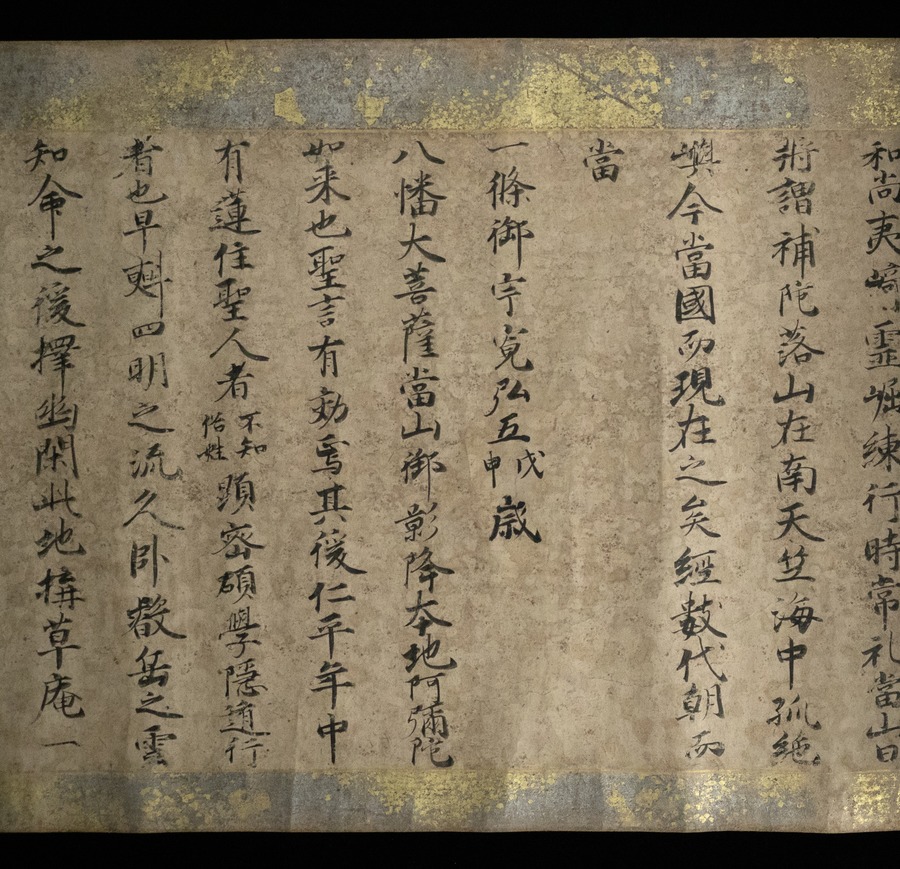 和尚夷﨑靈崛練行時常礼當山曰
將謂補陀落山在南天竺海中孤絶
嶼今當國而現在之矣經數代朝而
當
一條御宇寛弘五戊申歳
八幡大菩薩當山御影降本地阿彌陀
如来也聖言有効焉其後仁平年中
有蓮住聖人者不知俗姓顕密碩學隠遁行
者也早斟四明之流久卧叡岳之雲
知命之後擇幽閑此地構草庵一